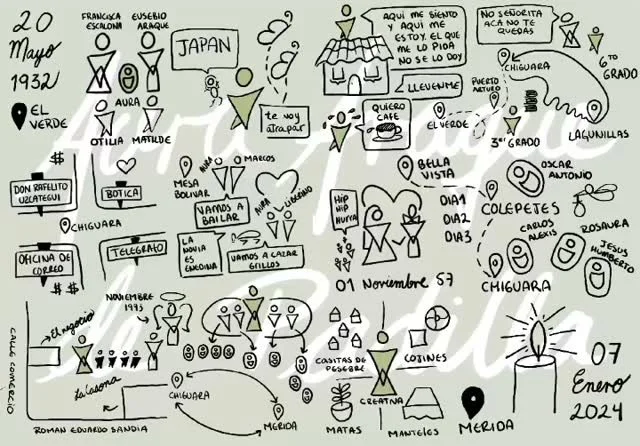 20
Mayo
1932
FRANCISCA
ESCALONA
EUSEBIO
ARAQUE
EL
VERDE
AURA
OTILIA
MATILDE
JAPAN
te voy
atrapar
AQUI ME SIENTO
Y AQUI ME
ESTOY. EL QUE
ME LO PIDA
NO SE LO DOY
LLEVENME
QUIERO
CAFE
NO SEÑORITA
ACA NO TE
QUEDAS
6TO
GRADO
CHIGUARA
PUERTO
ARTURO
EL VERDE
3er GRADO
LAGUNILLAS
$$
DON RAFELITO
UZCATEGUI
BOTICA
CHIGUARA
OFICINA DE
CORREO
TELEGRAFO
$$
MESA
BOLIVAR
AURA
MARCOS
VAMOS A
BAILAR
LA
NOVIA
ES
ENEDINA
AURA
LIBERIANO
VAMOS A CAZAR
GRILLOS
HIP
HIP
HURRA
01 Noviembre 57
BELLA
VISTA
DIA1
DIA2
DIA3
COLEPEJES
CHIGUARA
OSCAR
ANTONIO
CARLOS
ALEXIS
ROSAURA
JESUS
HUMBERTO
CALLE COMERCIO
El negocio
NOVIEMBRE
1975
La Casona
ROMAN EDUARDO SANDIA
CHIGUARA
MERIDA
CASITAS DE
PESEBRE
COJINES
CREATIVA
MATAS
MANTELES
MERIDA
07
Enero
2024
Aura Araque
de Padilla